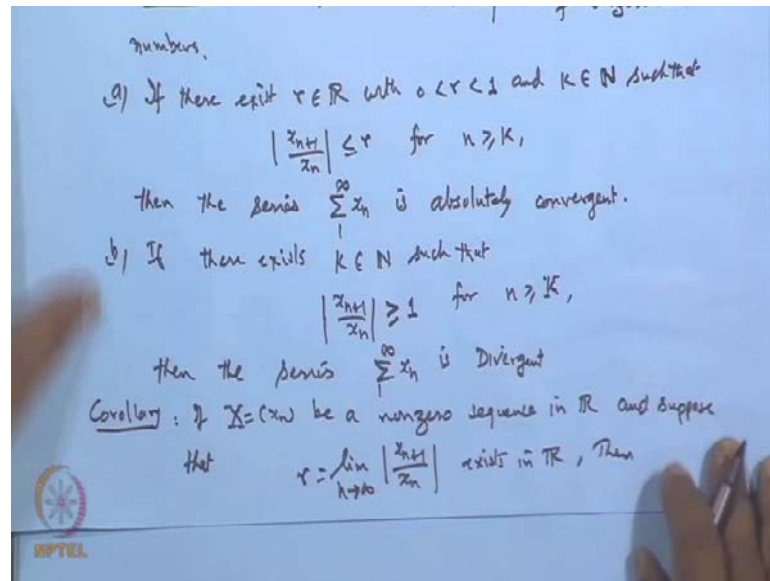 numbers.
a) If there exist r ∈ ℝ with 0 < r < 1 and K ∈ ℕ such that
|x_{n+1}/x_n| ≤ r for n ≥ K,
then the series ∑_{1}^{∞} x_n is absolutely convergent.
b) If there exists K ∈ ℕ such that
|x_{n+1}/x_n| ≥ 1 for n ≥ K,
then the series ∑_{1}^{∞} x_n is Divergent
Corollary : If X = (x_n) be a nonzero sequence in ℝ and suppose
that r = lim_{n→∞} |x_{n+1}/x_n| exists in ℝ, Then
NPTEL